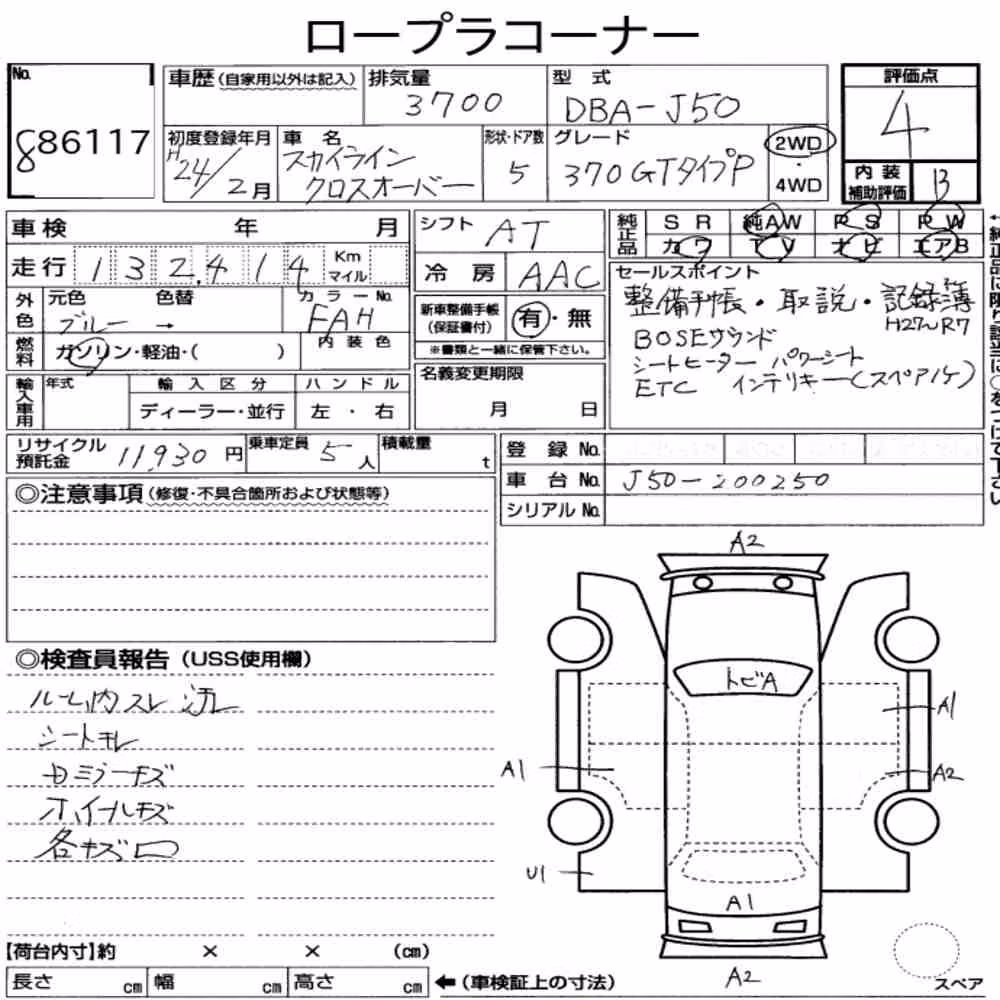 ロープラコーナー
No.
886117
車歴(自家用以外は記入)
排気量
3700
型式
DBA-J50
評価点
4
初度登録年月
H24/2月
車名
スカイライン
クロスオーバー
形状・ドア数
5
グレード
370GTタイプP
2WD
・
4WD
内装
補助評価
B
車検 年 月
シフト
AT
純正品
SR 純AW PS PW
カワ TV ナビ エアB
走行 132,414 Km マイル
冷房
AAC
セールスポイント
整備手帳・取説・記録簿
H27~R7
BOSEサウンド
シートヒーター パワーシート
ETC インテリキー(スペア1ケ)
外色
元色 色替 カラーNo.
ブルー → FAH
新車整備手帳
(保証書付)
有・無
※書類と一緒に保管下さい。
燃料
ガソリン・軽油・( )
内装色
輸入車用
年式
輸入区分
ハンドル
ディーラー・並行
左・右
名義変更期限
月 日
リサイクル
預託金
11,930円
乗車定員
5人
積載量
t
登録No.
車台No.
J50-200250
シリアルNo.
◎注意事項(修復・不具合箇所および状態等)
◎検査員報告(USS使用欄)
ルーム内スレ 汚レ
シートモレ
セミジーキズ
ホイールキズ
各キズ凹
A2
トビA
A1
A2
A1
U1
A1
A2
スペア
【荷台内寸】約 × × (cm)
長さ cm 幅 cm 高さ cm
←(車検証上の寸法)